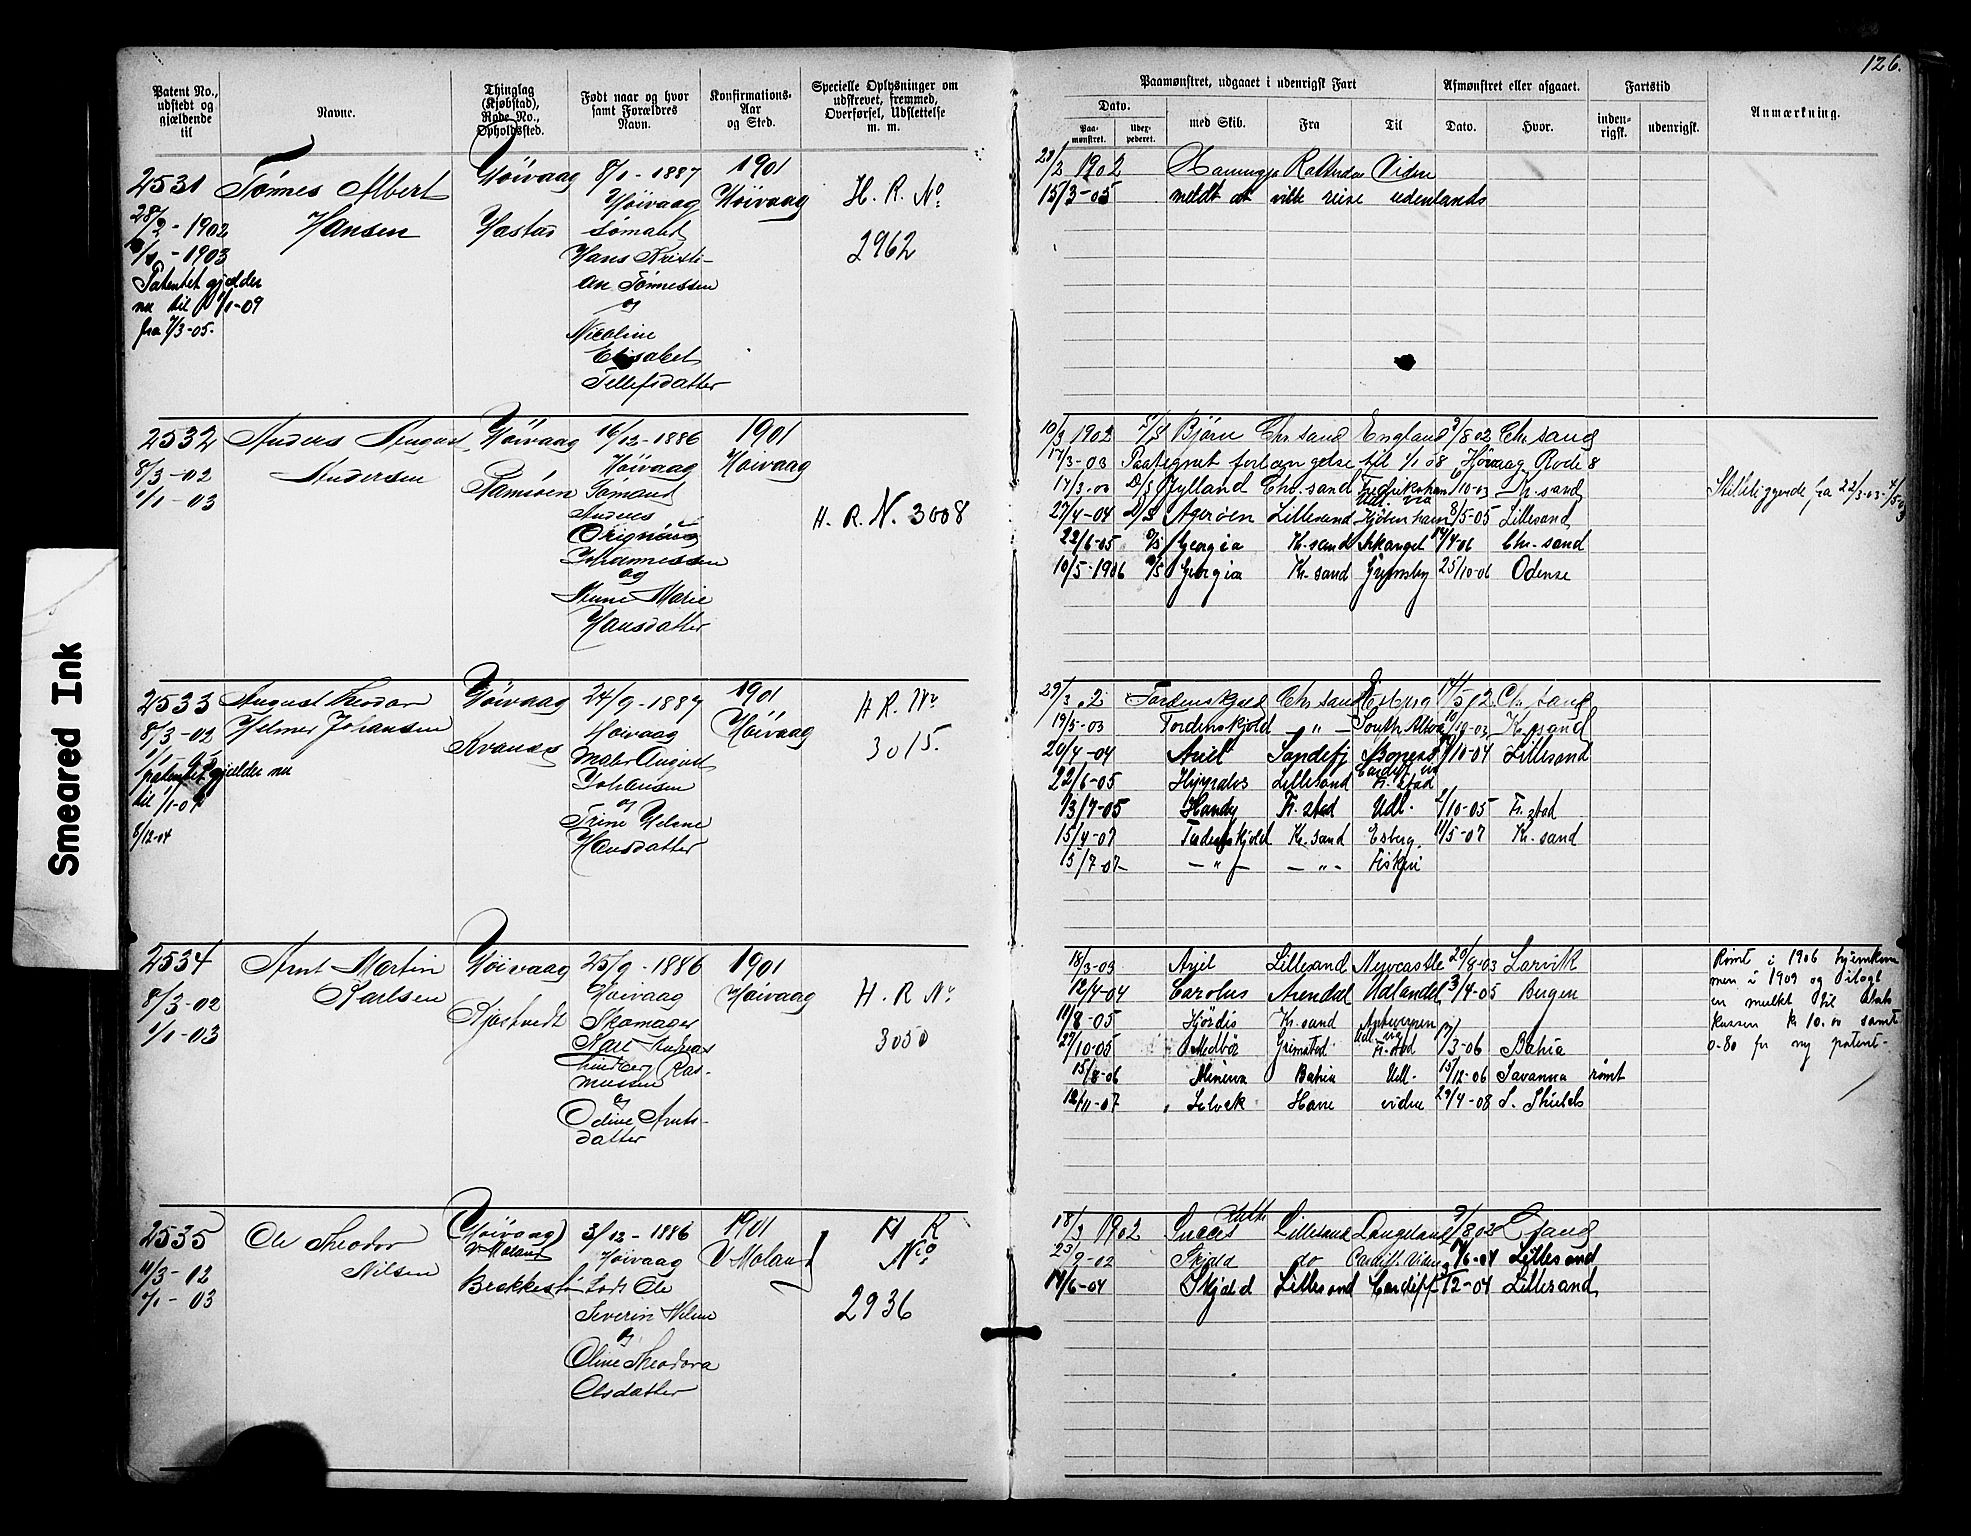 126.
Patent No., udstedt og gjældende til
Navne.
Thinglag (Kjøbstad), Rode No., Opholdssted.
Født naar og hvor samt Forældres Navn.
Konfirmations-Aar og Sted.
Specielle Oplysninger om udskrevet, fremmed, Overførsel, Udslettelse m. m.
Paamønstret, udgaaet i udenrigsk Fart
Dato.
Paamønstret.
med Skib.
Fra
Til
Afmønstret eller afgaaet.
Dato.
Hvor.
Fartstid
inden-rigsk.
udenrigsk.
Anmærkning.
2531
28/2 - 1902
1/1 - 1903
Patentet gjælder
nu til 1/1-09
fra 7/3-05.
Tømes Albert
Hansen
Høivaag
Hastad
8/1 - 1887
Høivaag
Sømand
Hans Kristi-
an Tønnessen
og
Nicoline
Elisabet
Tellefsdatter
1901
Høivaag
H. R. No.
2962
1902
15/3-05 meldt at ville reise udenlands
2532
8/3-02
1/1-03
Anders August
Andersen
Høivaag
16/12-1886
Høivaag
Sømand
Anders
Johannessen
og
Anne Marie
Hansdatter
1901
Høivaag
H. R. N. 3008
10/3 1902 Bjørn Chr.sand England 3/8 02 Chr.sand
17/3-03 Paategnet forlængelse til 1/1 08 Høvaag Rode 8
17/3-03 D/S Jylland Chr.sand Fredrikshavn /10-03 Kr.sand
27/4-04 D/S Agerøen Lillesand Kjøbenhavn 8/5-05 Lillesand
22/6-05 Georgia Kr.sand Arkangel /4-06 Chr.sand
10/5-1906 Georgia Kr.sand Grimsby 25/10-06 Odense
Stilleliggende fra 22/3-03 -
2533
8/3-02
patentet gjælder nu
til 1/1-07
8/12-04
August Theodor
Helmer Johansen
Høivaag
Kvanæs
24/9-1887
Høivaag
Maler August
Johansen
og
Trine Helene
Hansdatter
1901
Høivaag
H R. No
3015.
29/3 02 Tordenskjold Chr sand Esberg 14/5 02 Chr sand
19/5-03 Tordenskjold - " - /10-03 K.sand
20/4-04 Ariel Sandefj Boness /10-04 Lillesand
Cardiff via
22/6-05 Lillesand Fr.stad
13/7-05 Handy Fr.stad Udl. /10-05 Fr.stad
15/4-07 Tordenskjold Kr.sand Esberg. 11/5-07 Kr.sand
15/7-07 - " - - " - Fiskeri
2534
8/3-02
1/1-03
Arnt Martin
Karlsen
Høivaag
Kjøstvedt
25/9-1886
Høivaag
Skomager
Karl Andreas
Lindberg Ras-
mussen
og
Odine Arnts-
datter
1901
Høivaag
H. R No.
3050
18/3-03 Ariel Lillesand Newcastle 20/8-03 Larvik
12/4-04 Carolus Arendal Udlandet 3/4-05 Bergen
11/8-05 Hjørdis Kr.sand Antwerpen
27/10-05 Medbør Grimstad Udl. via Fr.stad /3-06 Bahia
15/8-06 Minerva Bahia Udl. 15/12-06 Savanna rømt
12/11-07 Havre viden 29/4-08 S. Shields
Rømt i 1906 hjemkom
men i 1909 og ilagt
en mulkt til stats
kassen kr 10.00 samt
0-80 for ny patent-
2535
11/3-02
1/1-03
Ole Theodor
Nilsen
(Høivaag)
V Moland
Brækkestø
3/12-1886
Høivaag
Lods Ole
Severin Nilsen
og
Oline Theodora
Olsdatter
1901
V Moland
H R
No
2936
18/3 1902 Succes Lillesand Langeland /8 02
23/9-02 Skjold do Cardiff Viden /6-04 Lillesand
14/6-04 Skjold Lillesand Cardiff /12-04 Lillesand
Smeared Ink